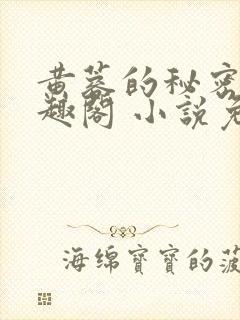 黄蓉的秘密
趣阁 小说免
海绵寶寶的菠